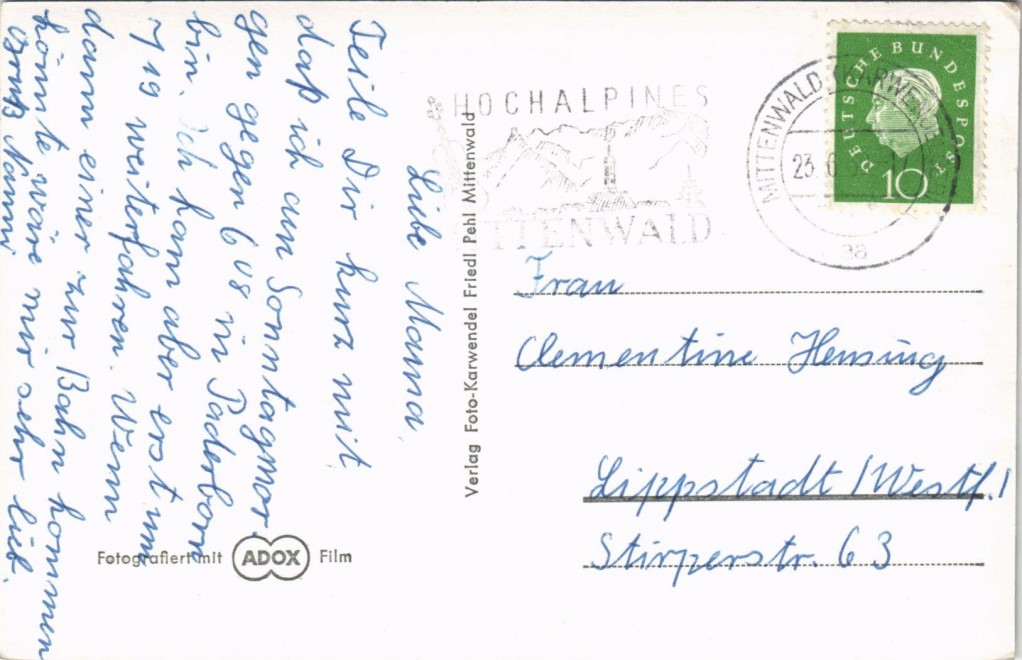 Liebe Mama,
Teile Dir kurz mit
daß ich am Sonntagmor-
gen gegen 6 08 in Paderborn
bin. Ich kann aber erst um
7 19 weiterfahren. Wenn
dann einer zur Bahn kommen
könnte wäre mir sehr lieb.
Gruß Nanni
Fotografiert mit ADOX Film
Verlag Foto-Karwendel Friedl Pehl Mittenwald
HOCHALPINES
MITTENWALD
MITTENWALD (KARWENDEL)
23.6.
aa
DEUTSCHE BUNDESPOST
10
Frau
Clementine Hensing
Lippstadt/Westf.
Stirperstr. 63